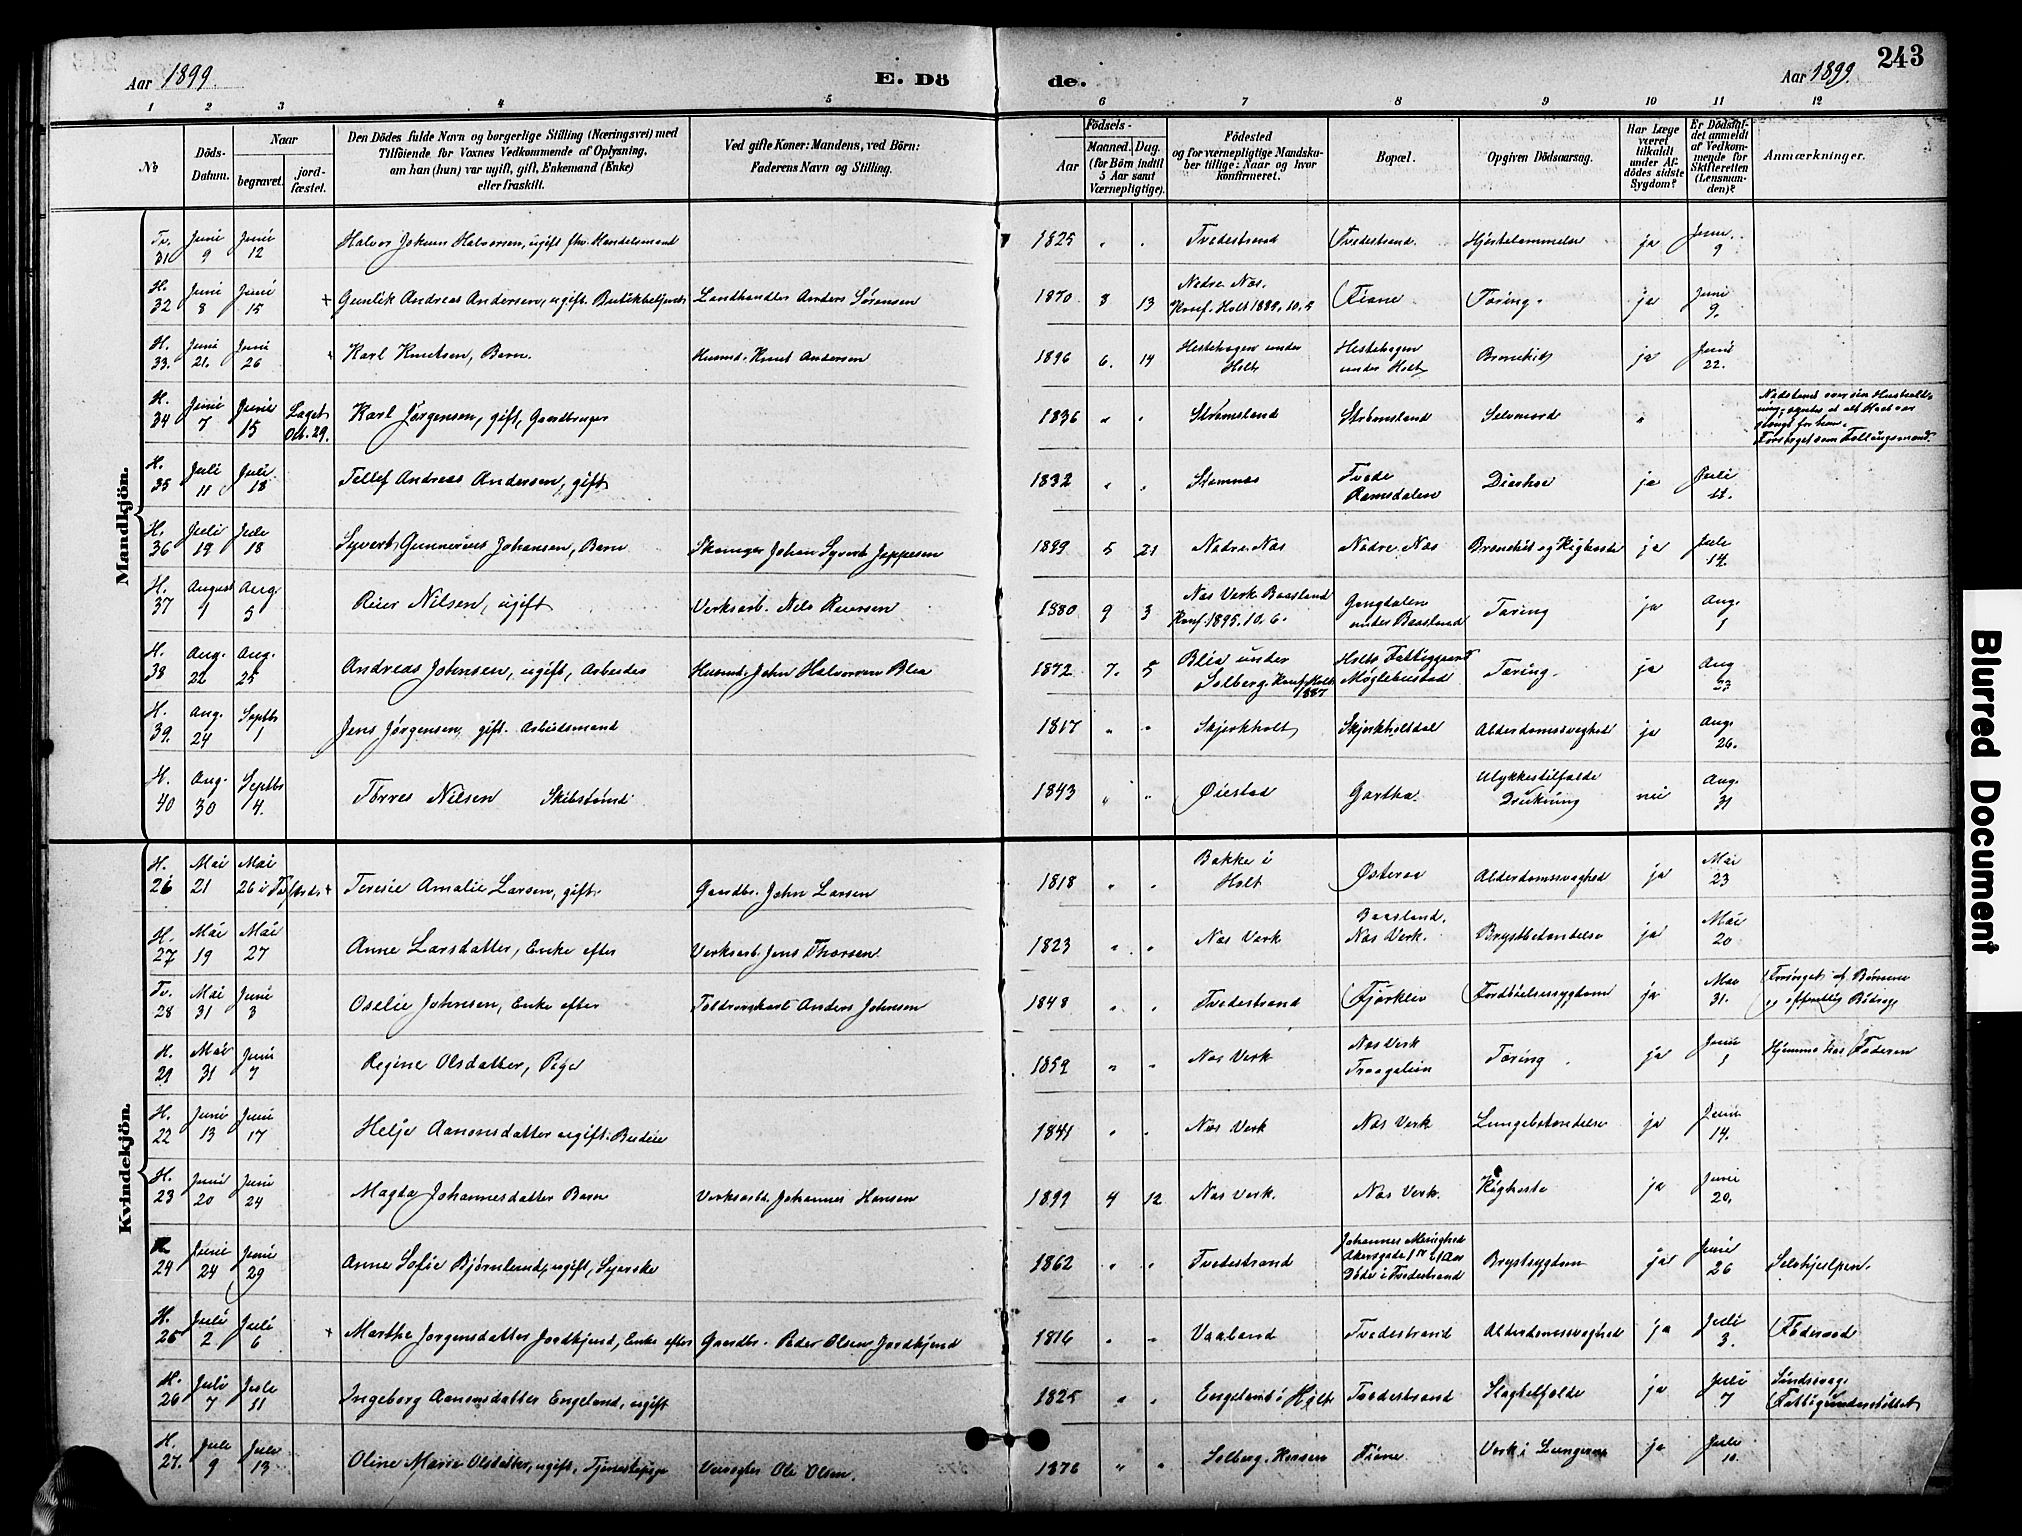 243
Aar 1899.
E. Dö
de.
Aar 1899.
1 2 3 4 5 6 7 8 9 10 11 12
No
Döds-
Datum.
Naar
begravet.
jord-
fæstet.
Den Dödes fulde Navn og borgerlige Stilling (Næringsvei) med
Tilföiende for Voxnes Vedkommende af Oplysning,
om han (hun) var ugift, gift, Enkemand (Enke)
eller fraskilt.
Ved gifte Koner: Mandens, ved Börn:
Faderens Navn og Stilling.
Födsels-
Aar
Maaned. Dag.
(for Börn indtil
5 Aar samt
Værnepligtige).
Födested
og for værnepligtige Mandska-
ber tillige: Naar og hvor
konfirmeret.
Bopæl.
Opgiven Dödsaarsag.
Har Læge
været
tilkaldt
under Af-
dödes sidste
Sygdom?
Er Dödsfal-
det anmeldt
af Vedkom-
mende for
Skifteretten
(Lensman-
den)?
Anmærkninger.
Mandkjön.
Tv. 31 Juni 9 Juni 12 Halvor Jokum Halvorsen, ugift fhv. Handelsmand 1825 " " Tvedestrand Tvedestrand. Hjertelammelse ja Juni 9
H. 32 Juni 8 Juni 15 + Gunlik Andreas Andersen, ugift Landhandler Anders Sørensen 1870 3 13 Nedre Næs. Konf. Holt 1889. 10. 5 Fiane Tæring. ja Juni 9.
H. 33. Juni 21. Juni 26 Karl Knutsen, Barn. Husmd. Knut Andersen 1896 6. 14 Hestehagen under Holt Hestehagen under Holt Bronkit ja Juni 22.
H. 34 Juni 7 Juni 15 Laget Okt. 29. Karl Jørgensen, gift, Gaardbruger 1836 " " Strømsland Strømsland Selvmord "
H. 35 Juli 11 Juli 18 Tellef Andreas Andersen, gift 1832 " " Stomnæs Tvede Ramsdalen Diarrhoe ja Juli
H. 36 Juli 12 Juli 18 Syvert Gunnerius Johansen, Barn Johan Syvert Jeppesen 1899 5 21 Nedre Næs Nedre Næs Bronchit og Kighoste ja Juli 14.
H. 37 August 1 Aug. 5 Reier Nilsen, ugift Verksarb. Nils Reiersen 1880 9 3 Næs Verk Baasland Konf. 1895. 10. 6. Gongdalen under Baasland Tæring ja Aug. 1
H. 38 Aug. 22 Aug. 25 Andreas Johnsen, ugift, Arbeider Husmd. John Halvorsen Blia 1872 7. 5 Blia under Solberg. Konf. Holt 1887 Holts Fattiggaard Møglebustad Tæring. ja Aug 23
H. 39. Aug. 24 Septbr 1 Jens Jørgensen, gift. Arbeidsmand 1817 " " Skjerkholt Skjerkholtdal Alderdomssvaghed ja Aug. 26.
H. 40 Aug. 30 Septbr 4. Torres Nilsen Skibstømd. 1843 " " Øiestad Gartha. Ulykkestilfælde Drukning nei Aug. 31
Kvindekjön.
H. 26 Mai 21 Mai 26 + Teresie Amalie Larsen, gift. Gaardbr. John Larsen 1818 " " Bakke i Holt Østeraa Alderdomssvaghed ja Mai 23
H. 27 Mai 19 Mai 27 Anne Larsdatter, Enke efter Verksarb. Jens Thorsen. 1823 " " Næs Verk Baasland. Næs Verk. Brystbetændelse ja Mai 20
Tv. 28 Mai 31 Juni 3 Oselie Johnsen, Enke efter Anders Johnsen 1848 " " Tvedestrand Fjærkleiv ja Mai 31. Forsørget af Børnene og offentlig Bidrag
H. 29 Mai 31 Juni 7 Regine Olsdatter, Pige 1859 " " Næs Verk Næs Verk Tæring. ja Juni 1 Hjemme hos Faderen
H. 22 Juni 13 Juni 17 Helje Aanonsdatter ugift. Budeie 1841 " " Næs Verk Næs Verk Lungebetændelse ja Juni 14.
H. 23 Juni 20 Juni 24 Magda Johannesdatter Barn Verksarbd. Johannes Hansen 1899 4 12 Næs Verk. Næs Verk. Kighoste ja Juni 20.
24 Juni 24 Juni 29 Anne Sofie Bjørnland, ugift, Syerske 1862 " " Tvedestrand Døde i Tvedestrand Brystsygdom ja Juni 26 Selvhjelpen.
H. 25 Juli 2 Juli 6 + Marthe Jørgensdatter Jordkjend, Enke efter Gaardbr. Peder Olsen Jordkjend 1816 " " Vaaland Tvedestrand Alderdomssvaghed ja Juli 3. Føderaad
H. 26 Juli 7 Juli 11 Ingeborg Aanonsdatter Engeland, ugift 1825 " " Engeland i Holt Tvedestrand Slagtilfælde ja Juli 7 Sindssvag. Fattigunderstøttet
H. 27. Juli 9 Juli 13 Oline Marie Olsdatter, ugift, Tjenestepige Ole Olsen. 1876 " " Solberg. Fiane Verk i Lungerne ja Juli 10.
Blurred Document